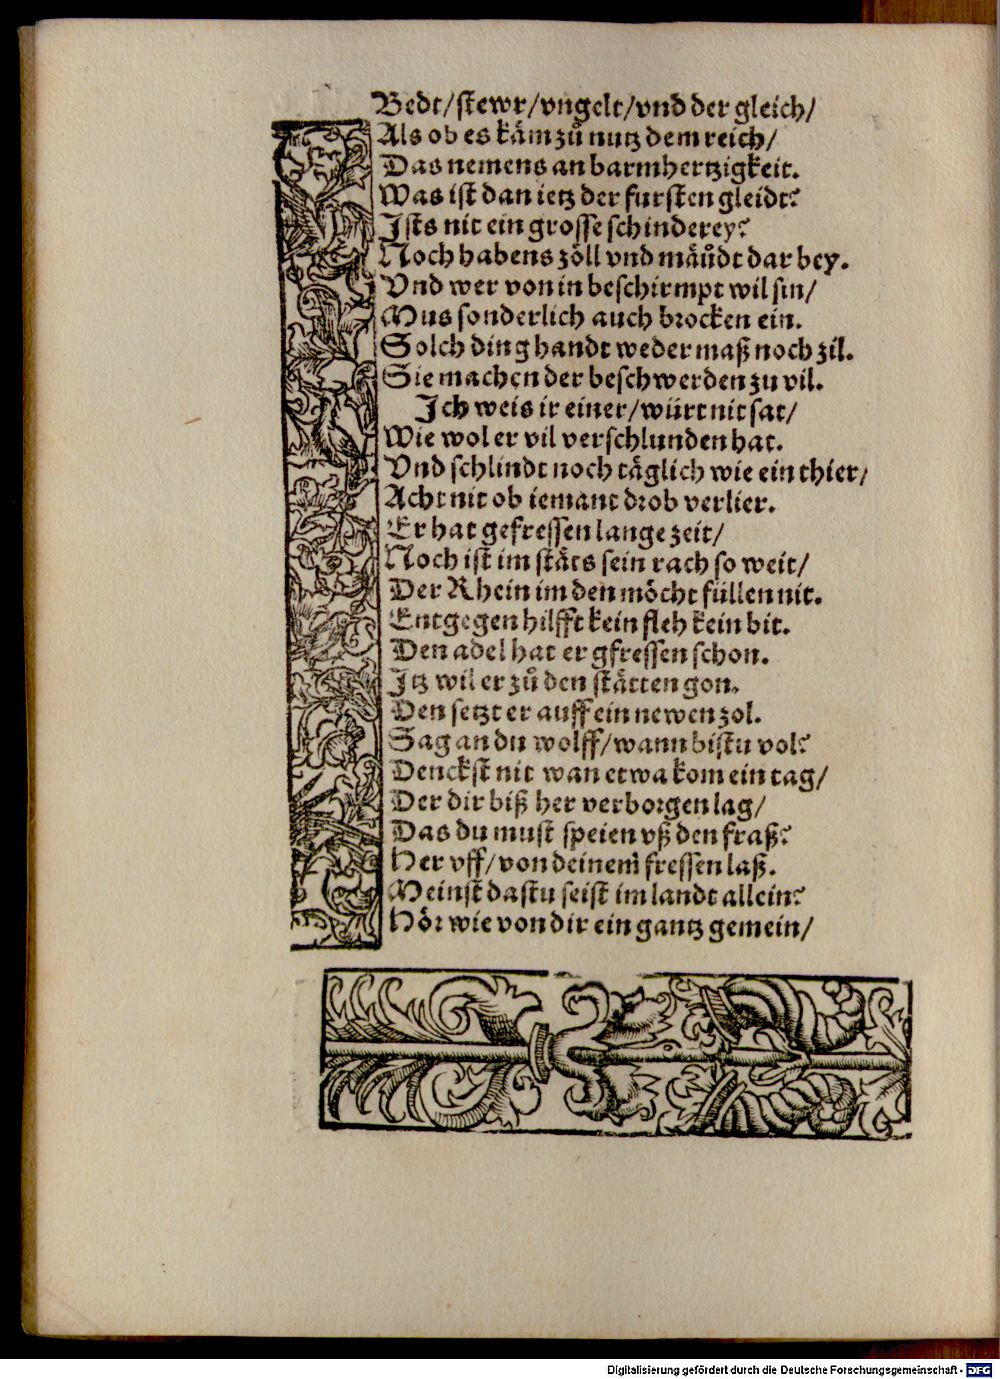 Bedt/stewr/vngelt/vnd der gleich/
Als ob es käm zů nutz dem reich/
Das nemens an barmhertzigkeit.
Was ist dan ietz der fursten gleidt?
Ists nit ein grosse schinderey?
Noch habens zöll vnd mäůdt dar bey.
Vnd wer von in beschirmpt wil sin/
Mus sonderlich auch brocken ein.
Solch ding handt weder maß noch zil.
Sie machen der beschwerden zu vil.
Ich weis ir einer/würt nit sat/
Wie wol er vil verschlunden hat.
Vnd schlindt noch täglich wie ein thier/
Acht nit ob iemant drob verlier.
Er hat gefressen lange zeit/
Noch ist im stäts sein rach so weit/
Der Rhein im den möcht füllen nit.
Entgegen hilfft kein fleh kein bit.
Den adel hat er gfressen schon.
Itz wil er zů den stätten gon.
Den setzt er auff ein newen zol.
Sag an du wolff/wann bistu vol?
Denckst nit wan etwa kom ein tag/
Der dir biß her verborgen lag/
Das du must speien vß den fraß?
Her vff/von deinem fressen laß.
Meinst dastu seist im landt allein?
Hör wie von dir ein gantz gemein/
Digitalisierung gefördert durch die Deutsche Forschungsgemeinschaft - DFG